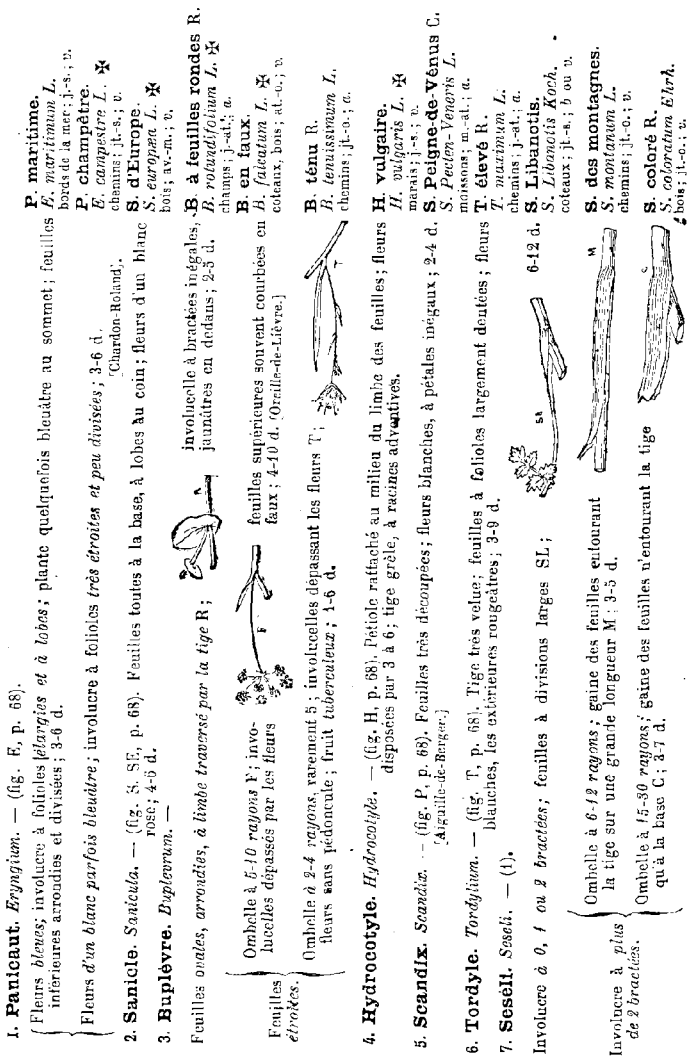 1. Panicaut. Eryngium. — (fig. E, p. 68).
Fleurs bleues; involucre à folioles élargies et à lobes; plante quelquefois bleuâtre au sommet; feuilles
inférieures arrondies et divisées; 3-6 d.
P. maritime.
E. maritimum L.
bords de la mer; j.-s.; v.
Fleurs d'un blanc parfois bleuâtre; involucre à folioles très étroites et peu divisées; 3-6 d.
[Chardon-Roland].
P. champêtre.
E. campestre L. ✠
chemins; jt.-s.; v.
2. Sanicle. Sanicula. — (fig. S. SE, p. 68). Feuilles toutes à la base, à lobes au coin; fleurs d'un blanc
rosé; 4-5 d.
S. d'Europe.
S. europæa L. ✠
bois; av.-m.; v.
3. Buplèvre. Buplevrum. —
Feuilles ovales, arrondies, à limbe traversé par la tige R;
R
involucelle à bractées inégales,
jaunâtres en dedans; 2-5 d.
B. à feuilles rondes R.
B. rotundifolium L. ✠
champs; j.-at.; a.
Feuilles
étroites.
Ombelle à 5-10 rayons F; invo-
lucelles dépassés par les fleurs
F
feuilles supérieures souvent courbées en
faux; 4-10 d. [Oreille-de-Lièvre.]
B. en faux.
B. falcatum L. ✠
coteaux, bois; at.-o.; v.
Ombelle à 2-4 rayons, rarement 5; involucelles dépassant les fleurs T;
fleurs sans pédoncule; fruit tuberculeux; 1-6 d.
T
B. ténu R.
B. tenuissimum L.
chemins; jt.-o.; a.
4. Hydrocotyle. Hydrocotyle. — (fig. H, p. 68). Pétiole rattaché au milieu du limbe des feuilles; fleurs
disposées par 3 à 6; tige grêle, à racines adventives.
H. vulgaire.
H. vulgaris L. ✠
marais; j.-s.; v.
5. Scandix. Scandix. — (fig. P, p. 68). Feuilles très découpées; fleurs blanches, à pétales inégaux; 2-4 d.
[Aiguille-de-Berger.]
S. Peigne-de-Vénus C.
S. Pecten-Veneris L.
moissons; m.-at.; a.
6. Tordyle. Tordylium. — (fig. T, p. 68). Tige très velue; feuilles à folioles largement dentées; fleurs
blanches, les extérieures rougeâtres; 3-9 d.
T. élevé R.
T. maximum L.
chemins; j.-at.; a.
7. Seséli. Seseli. — (1).
Involucre à 0, 1 ou 2 bractées; feuilles à divisions larges SL;
SL
6-12 d.
S. Libanotis.
S. Libanotis Koch.
coteaux; jt.-s.; b ou v.
Involucre à plus
de 2 bractées.
Ombelle à 6-12 rayons; gaine des feuilles entourant
la tige sur une grande longueur M; 3-5 d.
M
S. des montagnes.
S. montanum L.
chemins; jt.-o.; v.
Ombelle à 15-30 rayons; gaine des feuilles n'entourant la tige
qu'à la base C; 3-7 d.
C
S. coloré R.
S. coloratum Ehrh.
bois; jt.-o.; v.